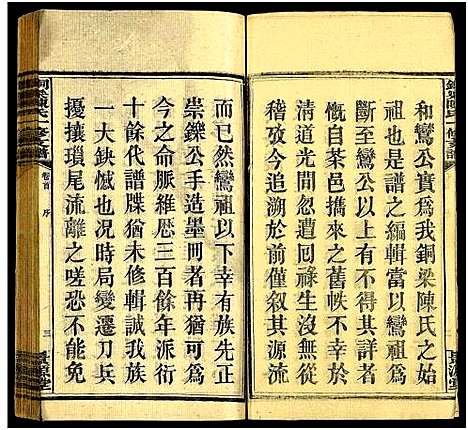 和鸞公實爲我銅梁陳氏之始
祖也是譜之編輯當以鸞公爲
斷至鸞公以上有不得其詳者
慨自茶邑攜來之舊帙不幸於
清道光間忽遭回祿生沒無可
稽攷今追溯於前僅叙其源流
而已然鸞祖以下幸有族先正
崇鑠公手造墨冊者再猶可爲
今之命脈維厯三百餘年派衍
十餘代譜牒猶未修輯誠我族
一大缺憾也况時局變遷刀兵
擾攘瑣尾流離之嗟恐不能免
卷首 序
三